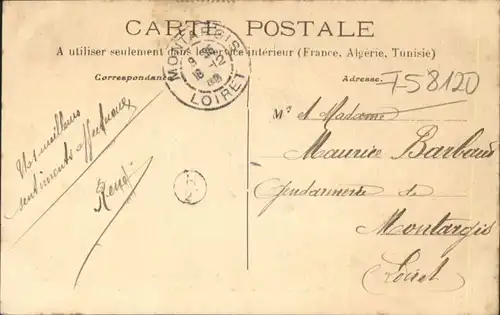 CARTE POSTALE
A utiliser seulement dans le service intérieur (France, Algérie, Tunisie)
Correspondance
Adresse
F58120
MONTARGIS
LOIRET
Mr et Madame
Maurice Barbaud
Gendarmerie de
Montargis
Loiret
Vos meilleurs
sentiments affectueux
René